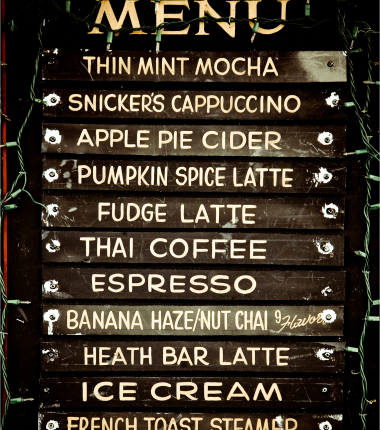 MENU
THIN MINT MOCHA
SNICKER'S CAPPUCCINO
APPLE PIE CIDER
PUMPKIN SPICE LATTE
FUDGE LATTE
THAI COFFEE
ESPRESSO
BANANA HAZE/NUT CHAI 9 Flavors
HEATH BAR LATTE
ICE CREAM
FRENCH TOAST STEAMER